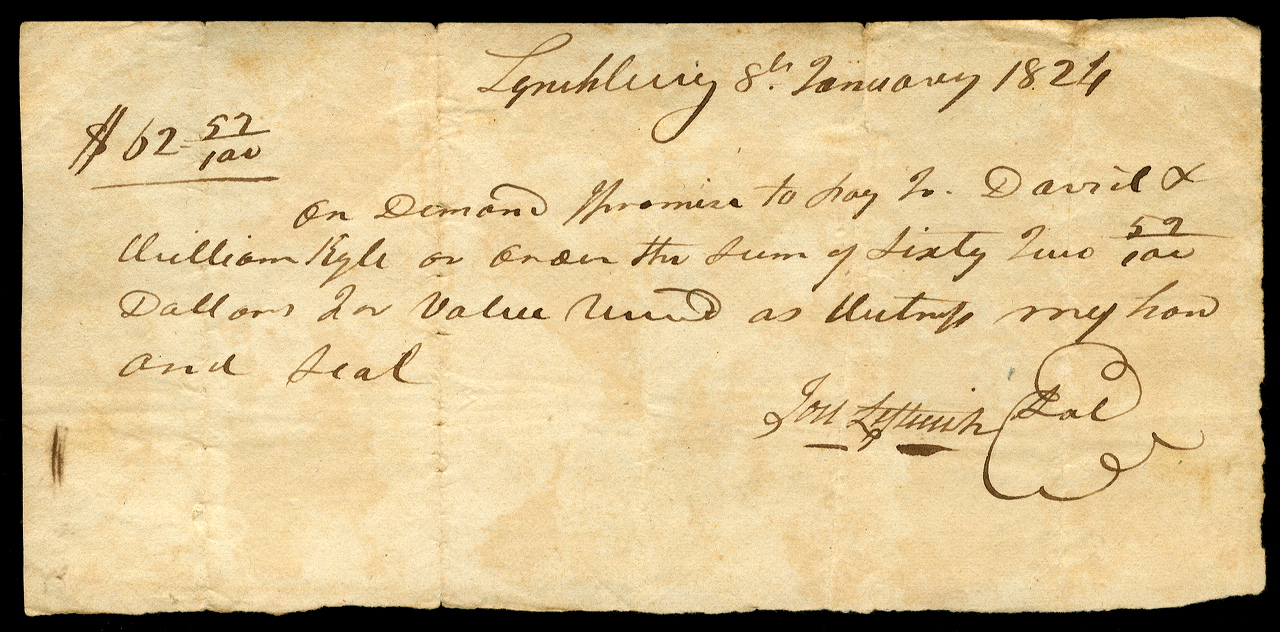 Lynchburg 8th January 1824
$62 52/100
On Demand I promise to pay to David &
William Kyle or order the sum of Sixty Two 52/100
Dollars for Value Recievd as Witness my han
and seal
Leftwich Seal